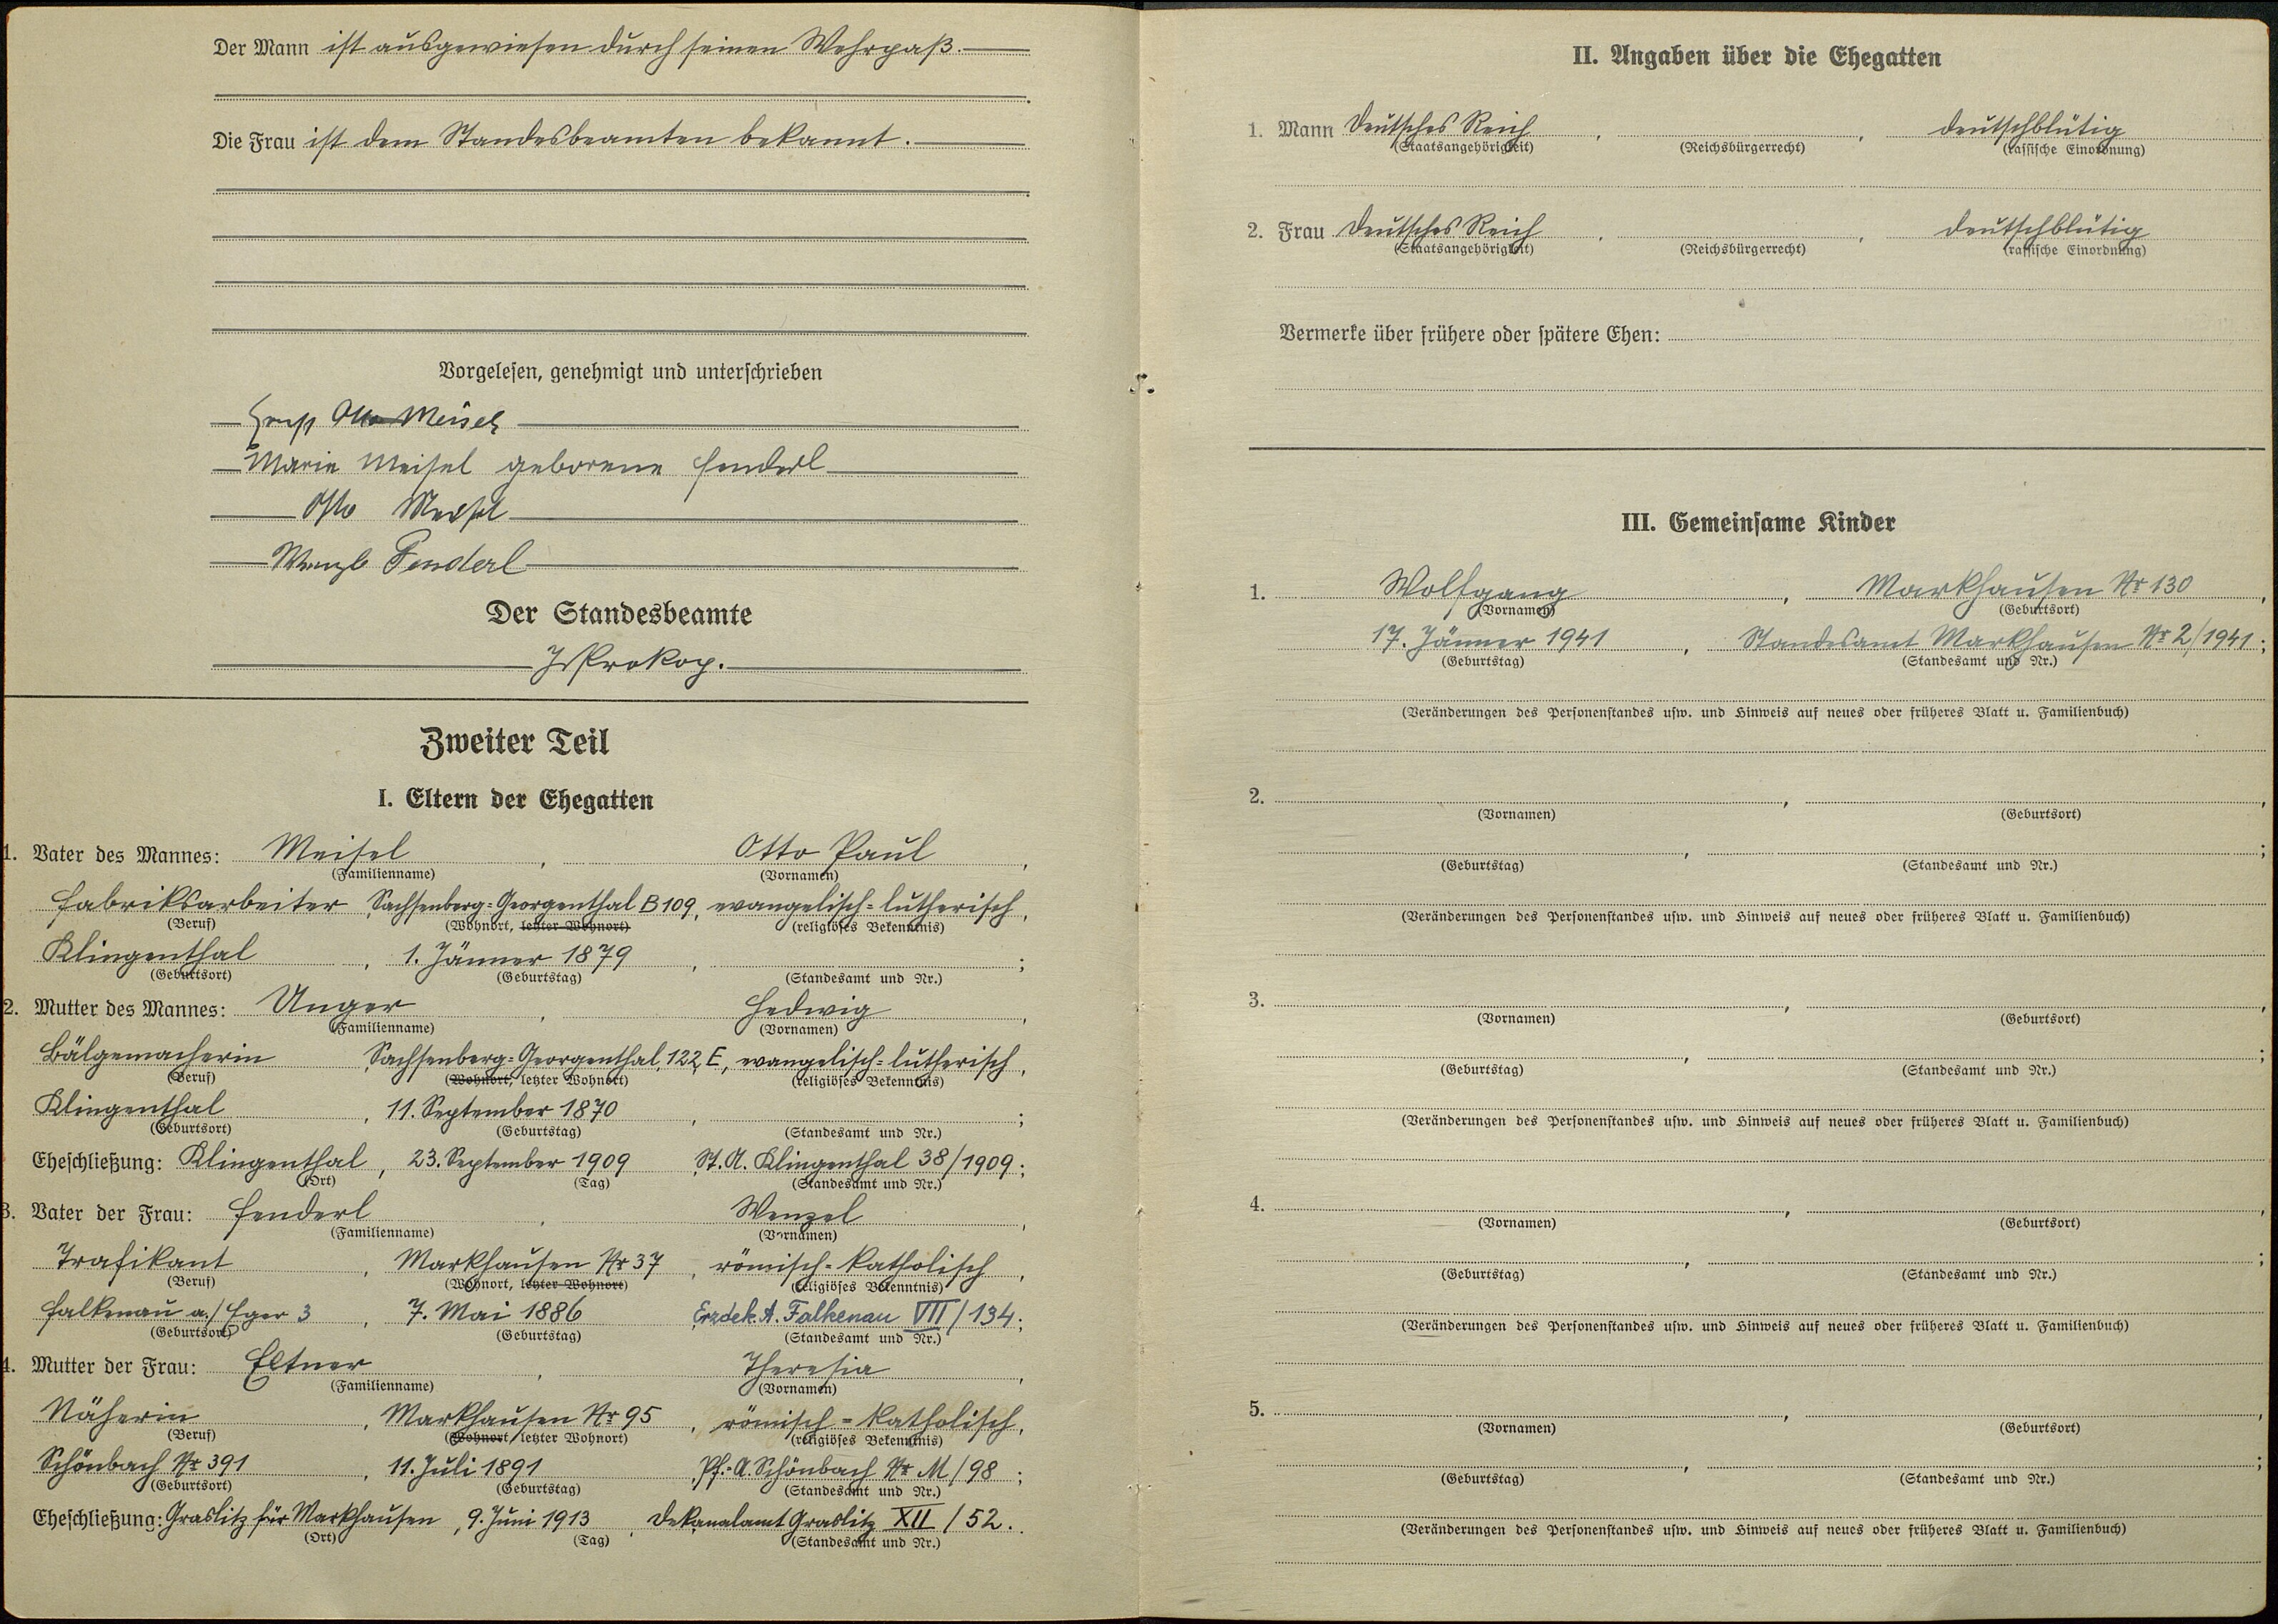 Der Mann ist ausgewiesen durch seinen Wehrpaß.
Die Frau ist dem Standesbeamten bekannt.
Vorgelesen, genehmigt und unterschrieben
Ernst Otto Meisel
Marie Meisel geborene Fenderl
Otto Meisel
Wenzl Fenderl
Der Standesbeamte
J Prokop.
Zweiter Teil
I. Eltern der Ehegatten
1. Vater des Mannes: Meisel, Otto Paul,
(Familienname) (Vornamen)
Fabriksarbeiter, Sachsenberg-Georgenthal B 109, evangelisch-lutherisch,
(Beruf) (Wohnort, letzter Wohnort) (religiöses Bekenntnis)
Klingenthal, 1. Jänner 1879, ;
(Geburtsort) (Geburtstag) (Standesamt und Nr.)
2. Mutter des Mannes: Unger, Hedwig,
(Familienname) (Vornamen)
Bälgemacherin, Sachsenberg-Georgenthal, 122 E, evangelisch-lutherisch,
(Beruf) (Wohnort, letzter Wohnort) (religiöses Bekenntnis)
Klingenthal, 11. September 1870, ;
(Geburtsort) (Geburtstag) (Standesamt und Nr.)
Eheschließung: Klingenthal, 23. September 1909, St. A. Klingenthal 38/1909;
(Ort) (Tag) (Standesamt und Nr.)
3. Vater der Frau: Fenderl, Wenzel,
(Familienname) (Vornamen)
Trafikant, Markhausen Nr 37, römisch-katholisch,
(Beruf) (Wohnort, letzter Wohnort) (religiöses Bekenntnis)
Falkenau a./Eger 3, 7. Mai 1886, Erzdek. A. Falkenau VII/134;
(Geburtsort) (Geburtstag) (Standesamt und Nr.)
4. Mutter der Frau: Eltner, Theresia,
(Familienname) (Vornamen)
Näherin, Markhausen Nr 95, römisch-katholisch,
(Beruf) (Wohnort, letzter Wohnort) (religiöses Bekenntnis)
Schönbach Nr 391, 11. Juli 1891, Pf.-A. Schönbach Nr M/98;
(Geburtsort) (Geburtstag) (Standesamt und Nr.)
Eheschließung: Graslitz für Markhausen, 9. Juni 1913, Dekanalamt Graslitz XII/52.
(Ort) (Tag) (Standesamt und Nr.)
II. Angaben über die Ehegatten
1. Mann Deutsches Reich, , deutschblütig
(Staatsangehörigkeit) (Reichsbürgerrecht) (rassische Einordnung)
2. Frau Deutsches Reich, , deutschblütig
(Staatsangehörigkeit) (Reichsbürgerrecht) (rassische Einordnung)
Vermerke über frühere oder spätere Ehen:
III. Gemeinsame Kinder
1. Wolfgang, Markhausen Nr 130,
(Vornamen) (Geburtsort)
17. Jänner 1941, Standesamt Markhausen Nr 2/1941;
(Geburtstag) (Standesamt und Nr.)
(Veränderungen des Personenstandes usw. und Hinweis auf neues oder früheres Blatt u. Familienbuch)
2. , ,
(Vornamen) (Geburtsort)
, ;
(Geburtstag) (Standesamt und Nr.)
(Veränderungen des Personenstandes usw. und Hinweis auf neues oder früheres Blatt u. Familienbuch)
3. , ,
(Vornamen) (Geburtsort)
, ;
(Geburtstag) (Standesamt und Nr.)
(Veränderungen des Personenstandes usw. und Hinweis auf neues oder früheres Blatt u. Familienbuch)
4. , ,
(Vornamen) (Geburtsort)
, ;
(Geburtstag) (Standesamt und Nr.)
(Veränderungen des Personenstandes usw. und Hinweis auf neues oder früheres Blatt u. Familienbuch)
5. , ,
(Vornamen) (Geburtsort)
, ;
(Geburtstag) (Standesamt und Nr.)
(Veränderungen des Personenstandes usw. und Hinweis auf neues oder früheres Blatt u. Familienbuch)